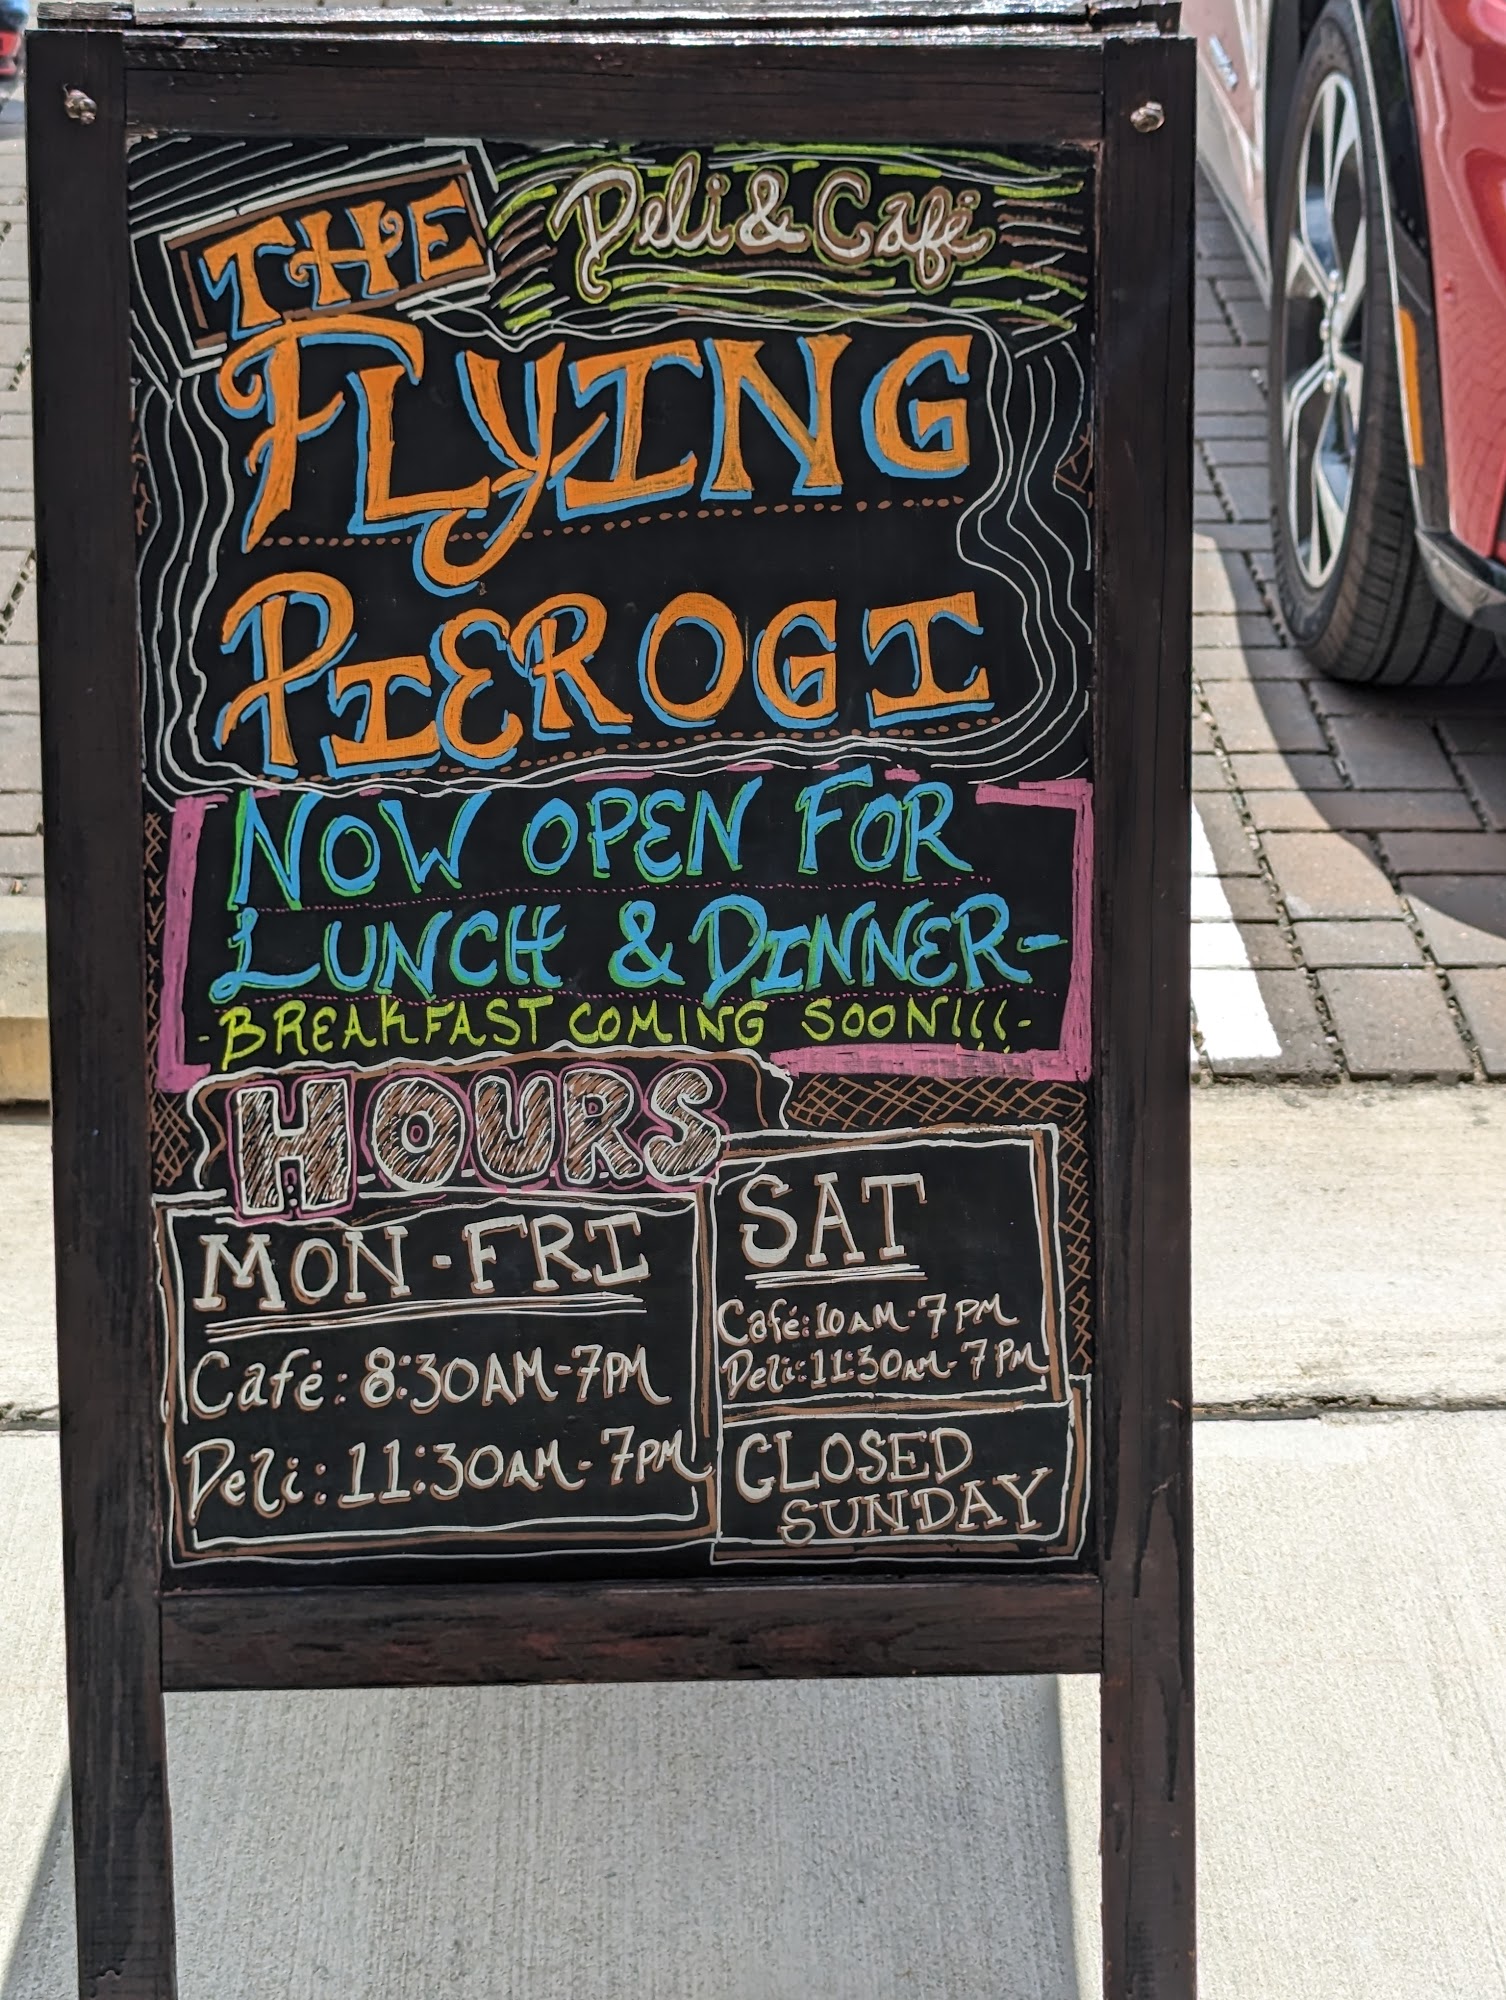 THE
Deli & Café
FLYING
PIEROGI
NOW OPEN FOR
LUNCH & DINNER-
-BREAKFAST COMING SOON!!!-
HOURS
MON-FRI
Café: 8:30AM-7PM
Deli: 11:30AM-7PM
SAT
Café: 10AM-7PM
Deli: 11:30AM-7PM
CLOSED
SUNDAY